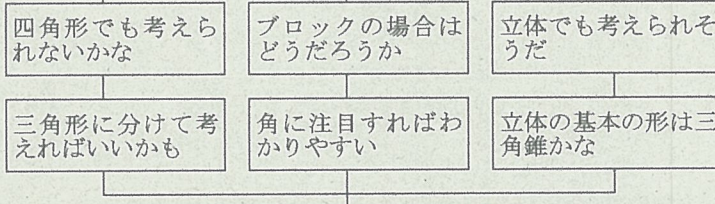 四角形でも考えら
れないかな
ブロックの場合は
どうだろうか
立体でも考えられそ
うだ
三角形に分けて考
えればいいかも
角に注目すればわ
かりやすい
立体の基本の形は三
角錐かな